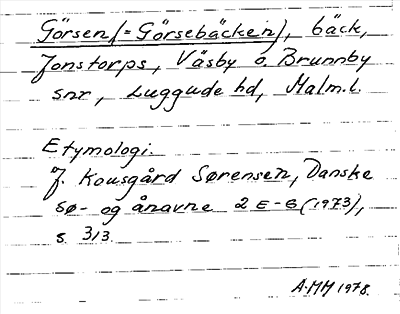 Görsen (= Görsebäcken), bäck,
Jonstorps, Väsby o. Brunnby
snr, Luggude hd, Malm.l.
Etymologi.
J. Kousgård Sørensen, Danske
sø- og ånavne 2 E-G (1973),
s. 313.
A.MM 1978.